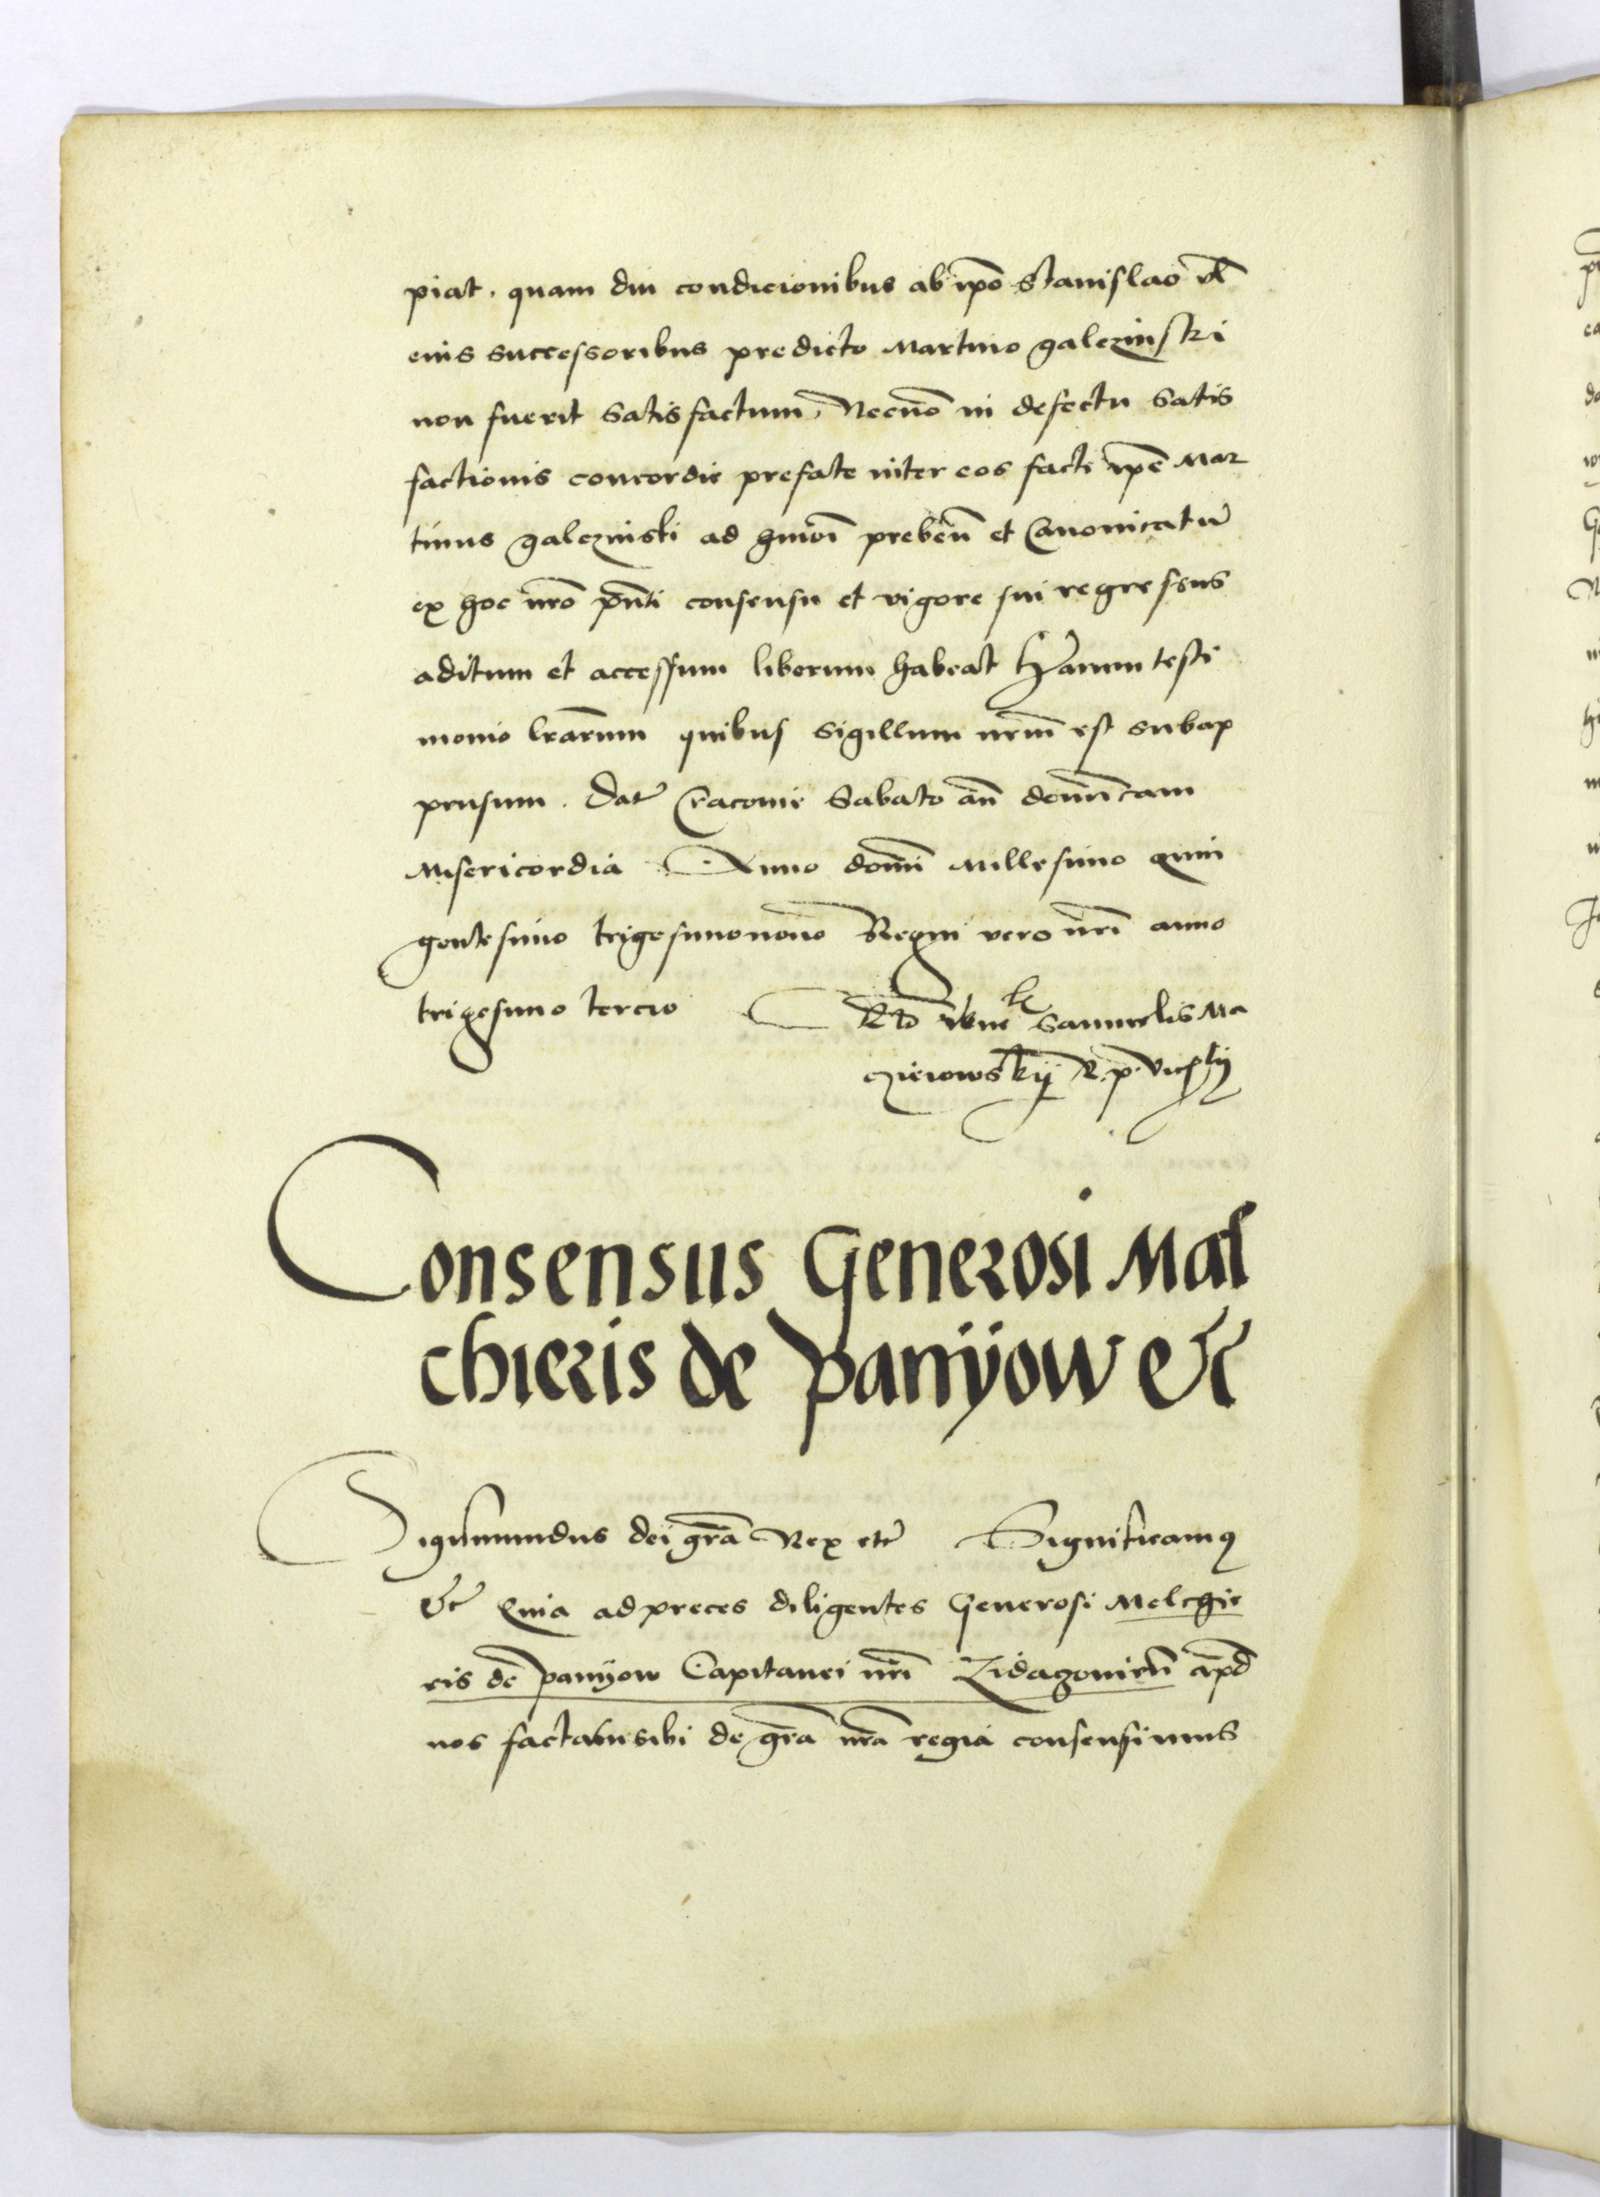 piat. quam diu condicionibus ab ip̄o Stanislao vl̄
eius successoribus predicto Martino galczinski
non fuerit Satisfactum, Necnō in defectu Satis
factionis concordie prefate inter eos facte ip̄e Mar
tinus galczinski ad hmōi prebeñ et Canonicatū
ex hoc nr̄o pñti consensu et vigore sui regressus
aditum et accessum liberum habeat Harum testi
monio lr̄arum quibus sigillum nr̄um est subap
pensum. Dat̄ Cracovie Sabato añ domīcam
Misericordia Anno domī Millesimo quin
gentesimo trigesimonono Regni vero nr̄i anno
trigesimo tercio Samuelis Ma
czieiowskij R. p.
Consensus Generosi Mal
chieris de panijow etc
Sigismundus dei gr̄a Rex etc̄ Significamus
etc̄ Quia ad preces diligentes Generosi Melchie
ris de panijow Capitanei nr̄i Zidagoviēñ apd̄
nos factas sibi de gr̄a nr̄a regia consensimus